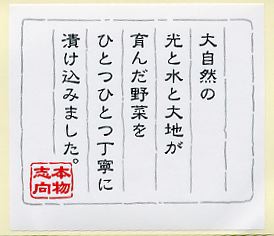 大自然の
光と水と大地が
育んだ野菜を
ひとつひとつ丁寧に
漬け込みました。
本物
志向